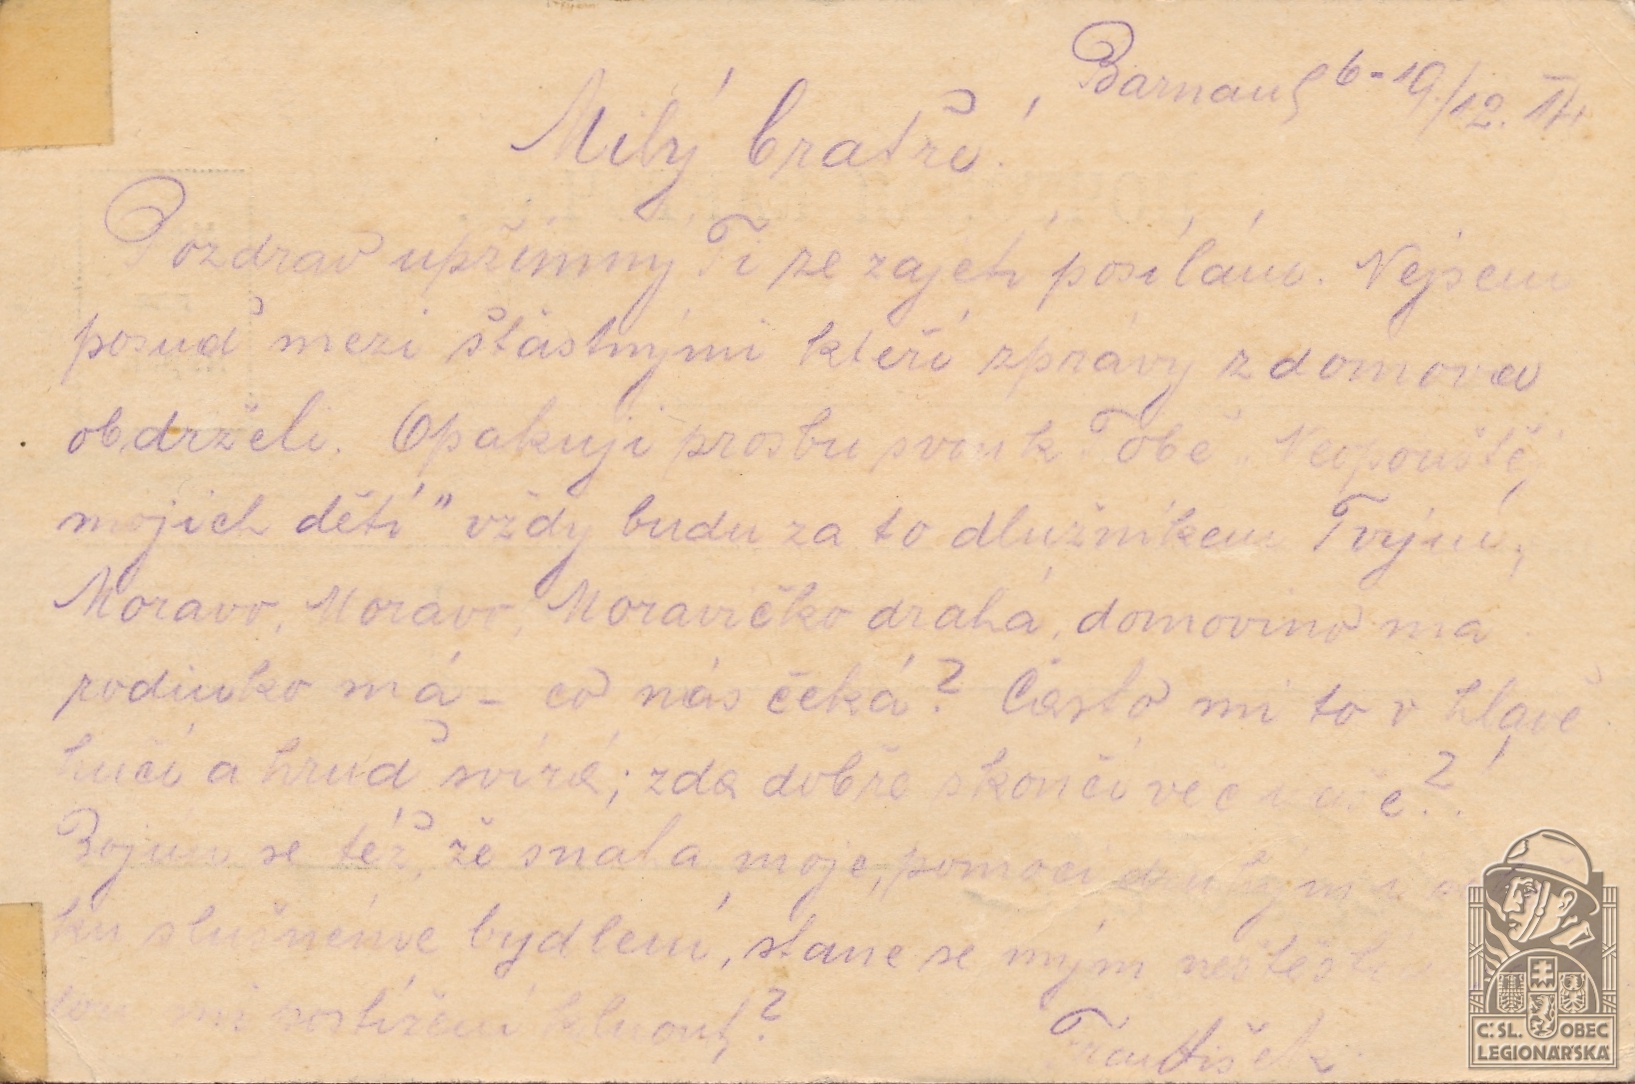 Barnaul 6-19/12. 14
Milý bratře!
Pozdrav upřímný Ti ze zajetí posílám. Nejsem
posud mezi šťastnými kteří zprávy z domova
obdrželi. Opakuji prosbu svou k Tobě „Neopouštěj
mojich dětí" vždy budu za to dlužníkem Tvým,
Moravo, Moravo, Moravičko drahá, domovino má
rodinko má – co nás čeká? Často mi to v hlavě
hučí a hruď svírá; zda dobře skončí věc naše?!
Bojím se též, že snaha moje, pomoci druhým
ku slušnému bydlení, stane se mým neštěstím
František
Č. SL. OBEC
LEGIONÁŘSKÁ